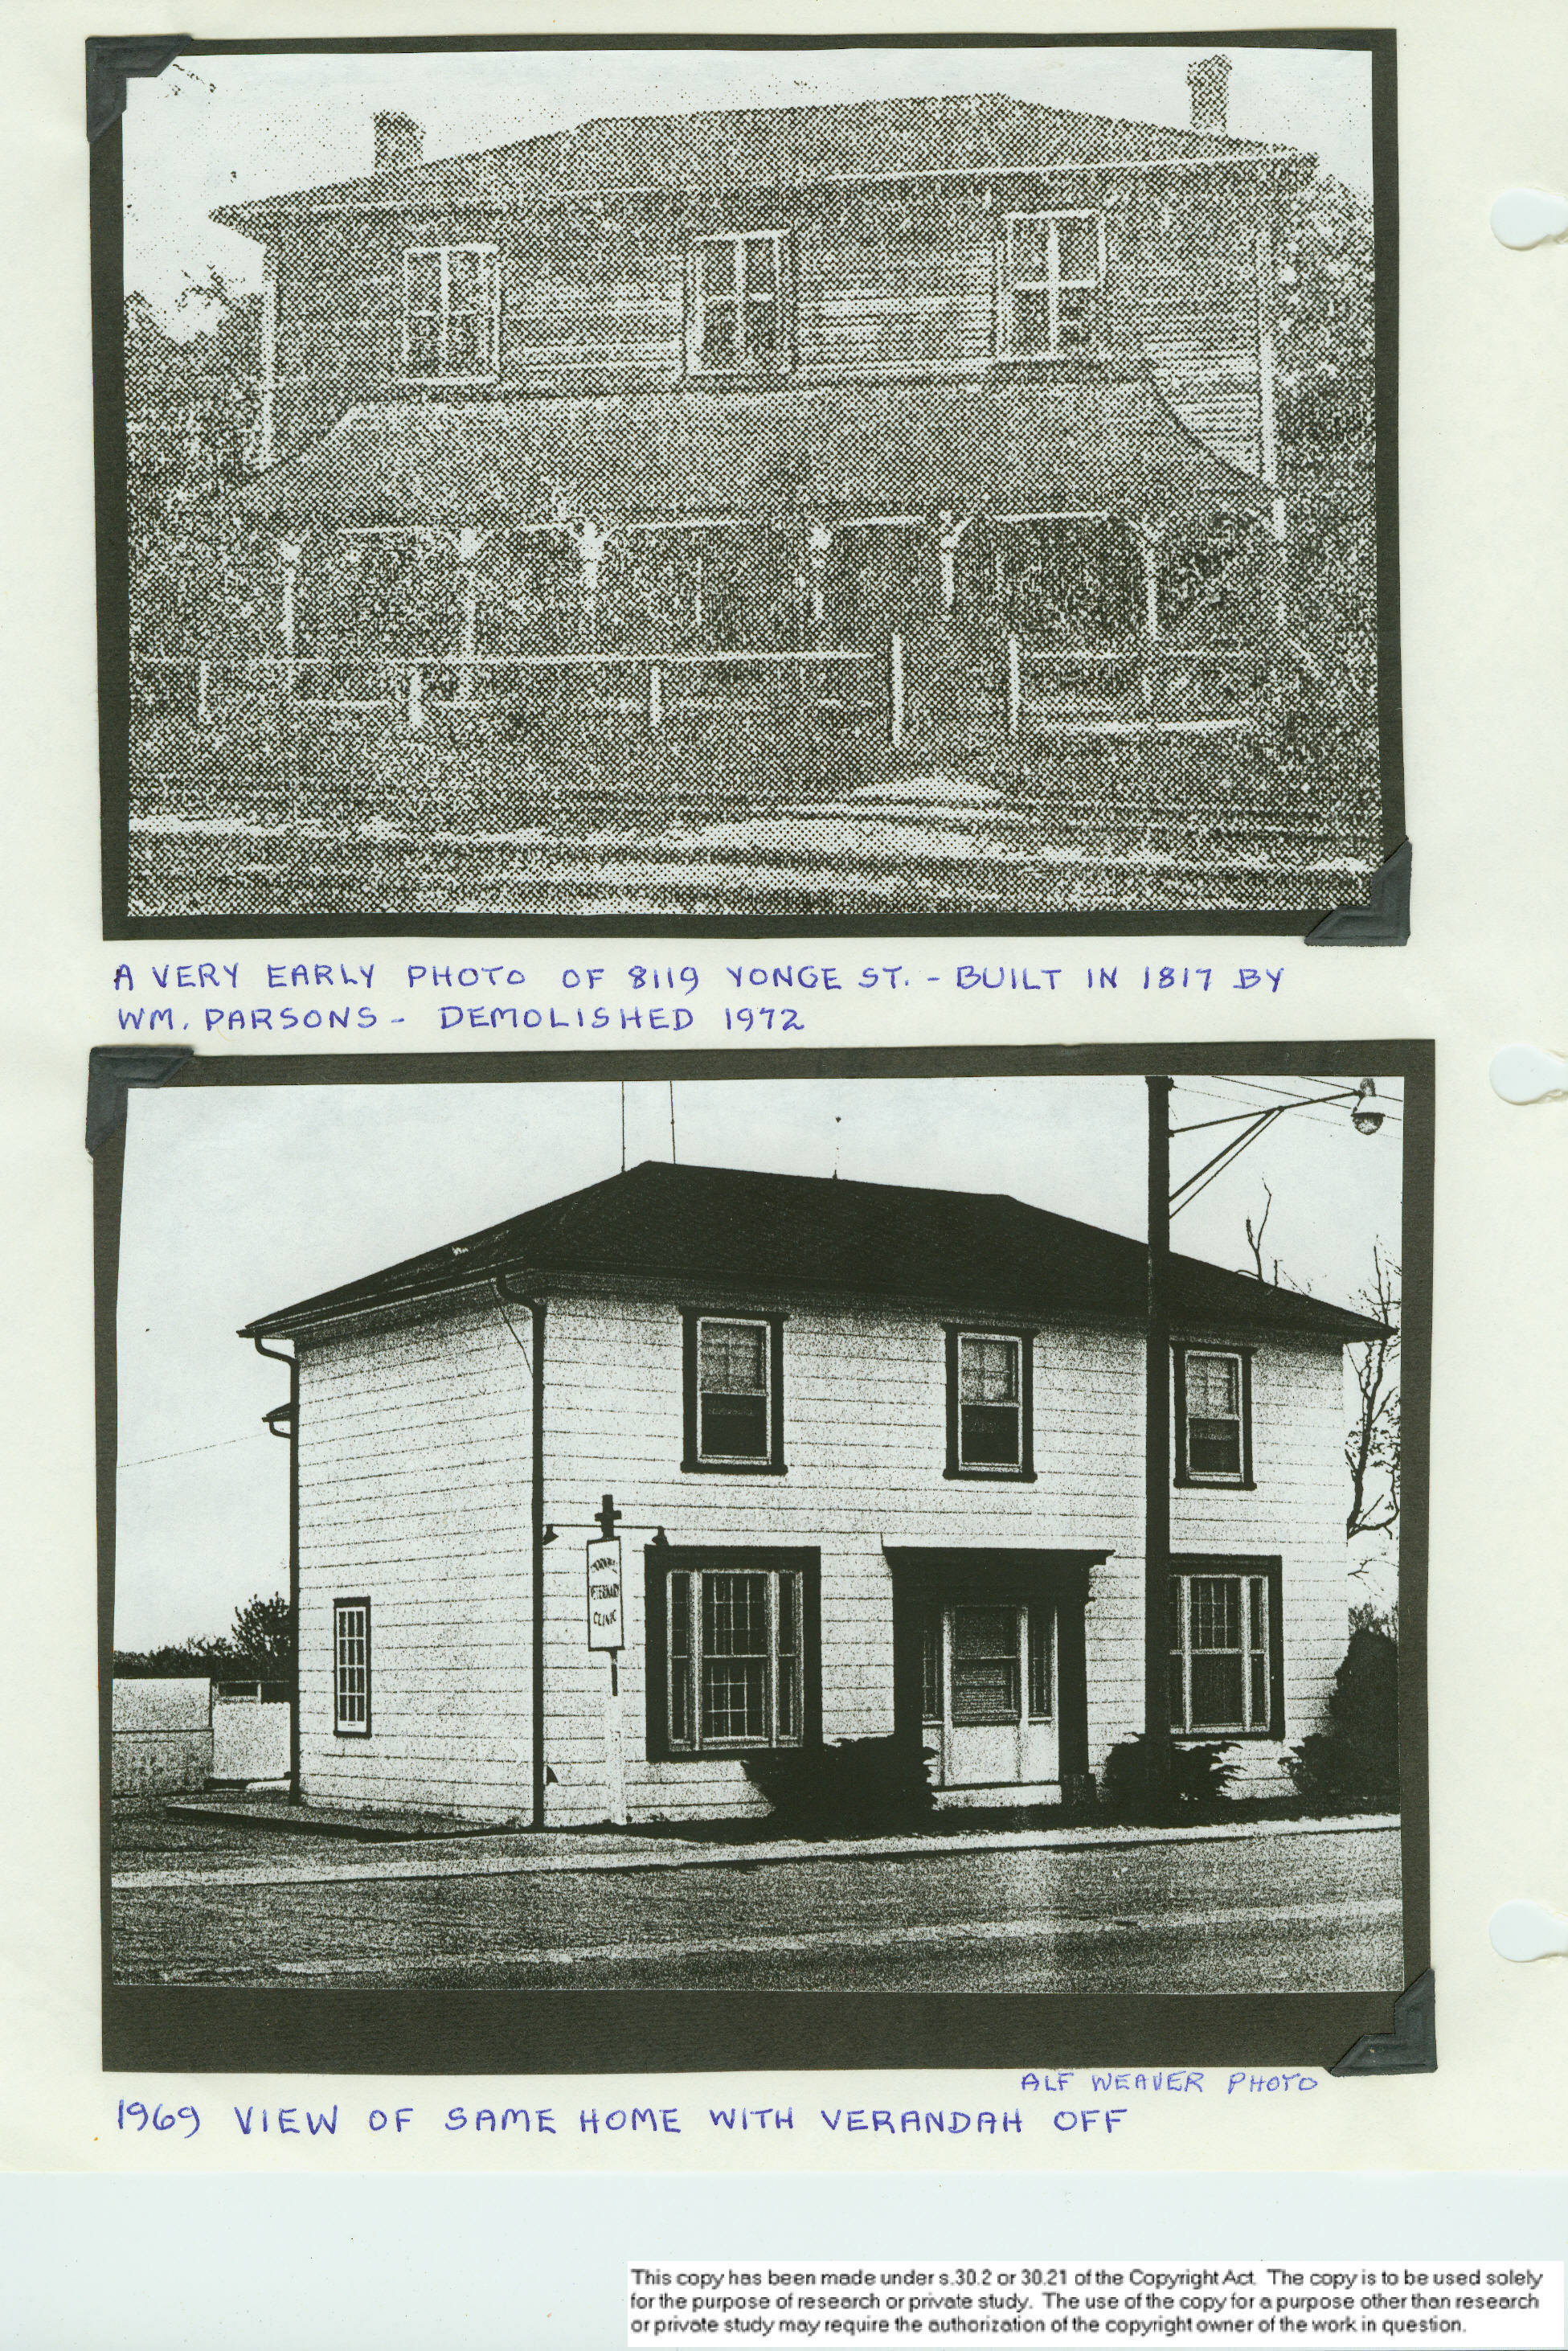 A VERY EARLY PHOTO OF 8119 YONGE ST. - BUILT IN 1817 BY
WM. PARSONS - DEMOLISHED 1972
VETERINARY
CLINIC
ALF WEAVER PHOTO
1969 VIEW OF SAME HOME WITH VERANDAH OFF
This copy has been made under s.30.2 or 30.21 of the Copyright Act. The copy is to be used solely
for the purpose of research or private study. The use of the copy for a purpose other than research
or private study may require the authorization of the copyright owner of the work in question.